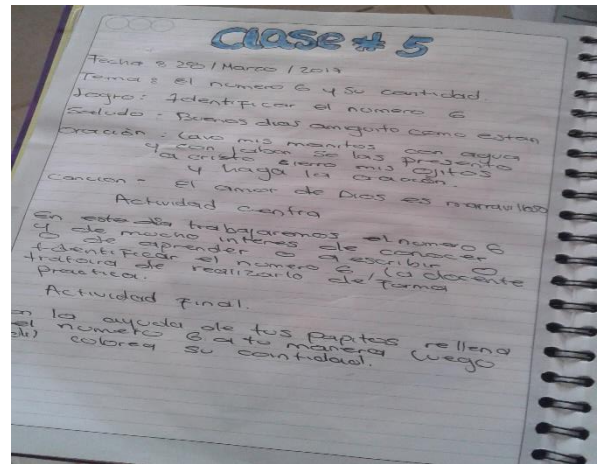 Clase # 5
Fecha: 28 / Marzo / 2019
Tema: el numero 6 y su cantidad.
Logro: Identificar el numero 6
Saludo - Buenos dias amiguito como estan
Oración: Lavo mis manitos con agua
y con jabon se las presento
a cristo sierro mis ojitos
y haga la oración.
Cancion - El amor de Dios es marravilloso
Actividad Centra
En este dia trabajaremos el numero 6
y de mucho interes de conocer
o de aprender o a escribir o
Identificar el numero 6 la docente
tratara de realizarlo de forma
practica.
Actividad Final.
on la ayuda de tus papitos rellena
el numero 6 a tu manera luego
colorea su cantidad.